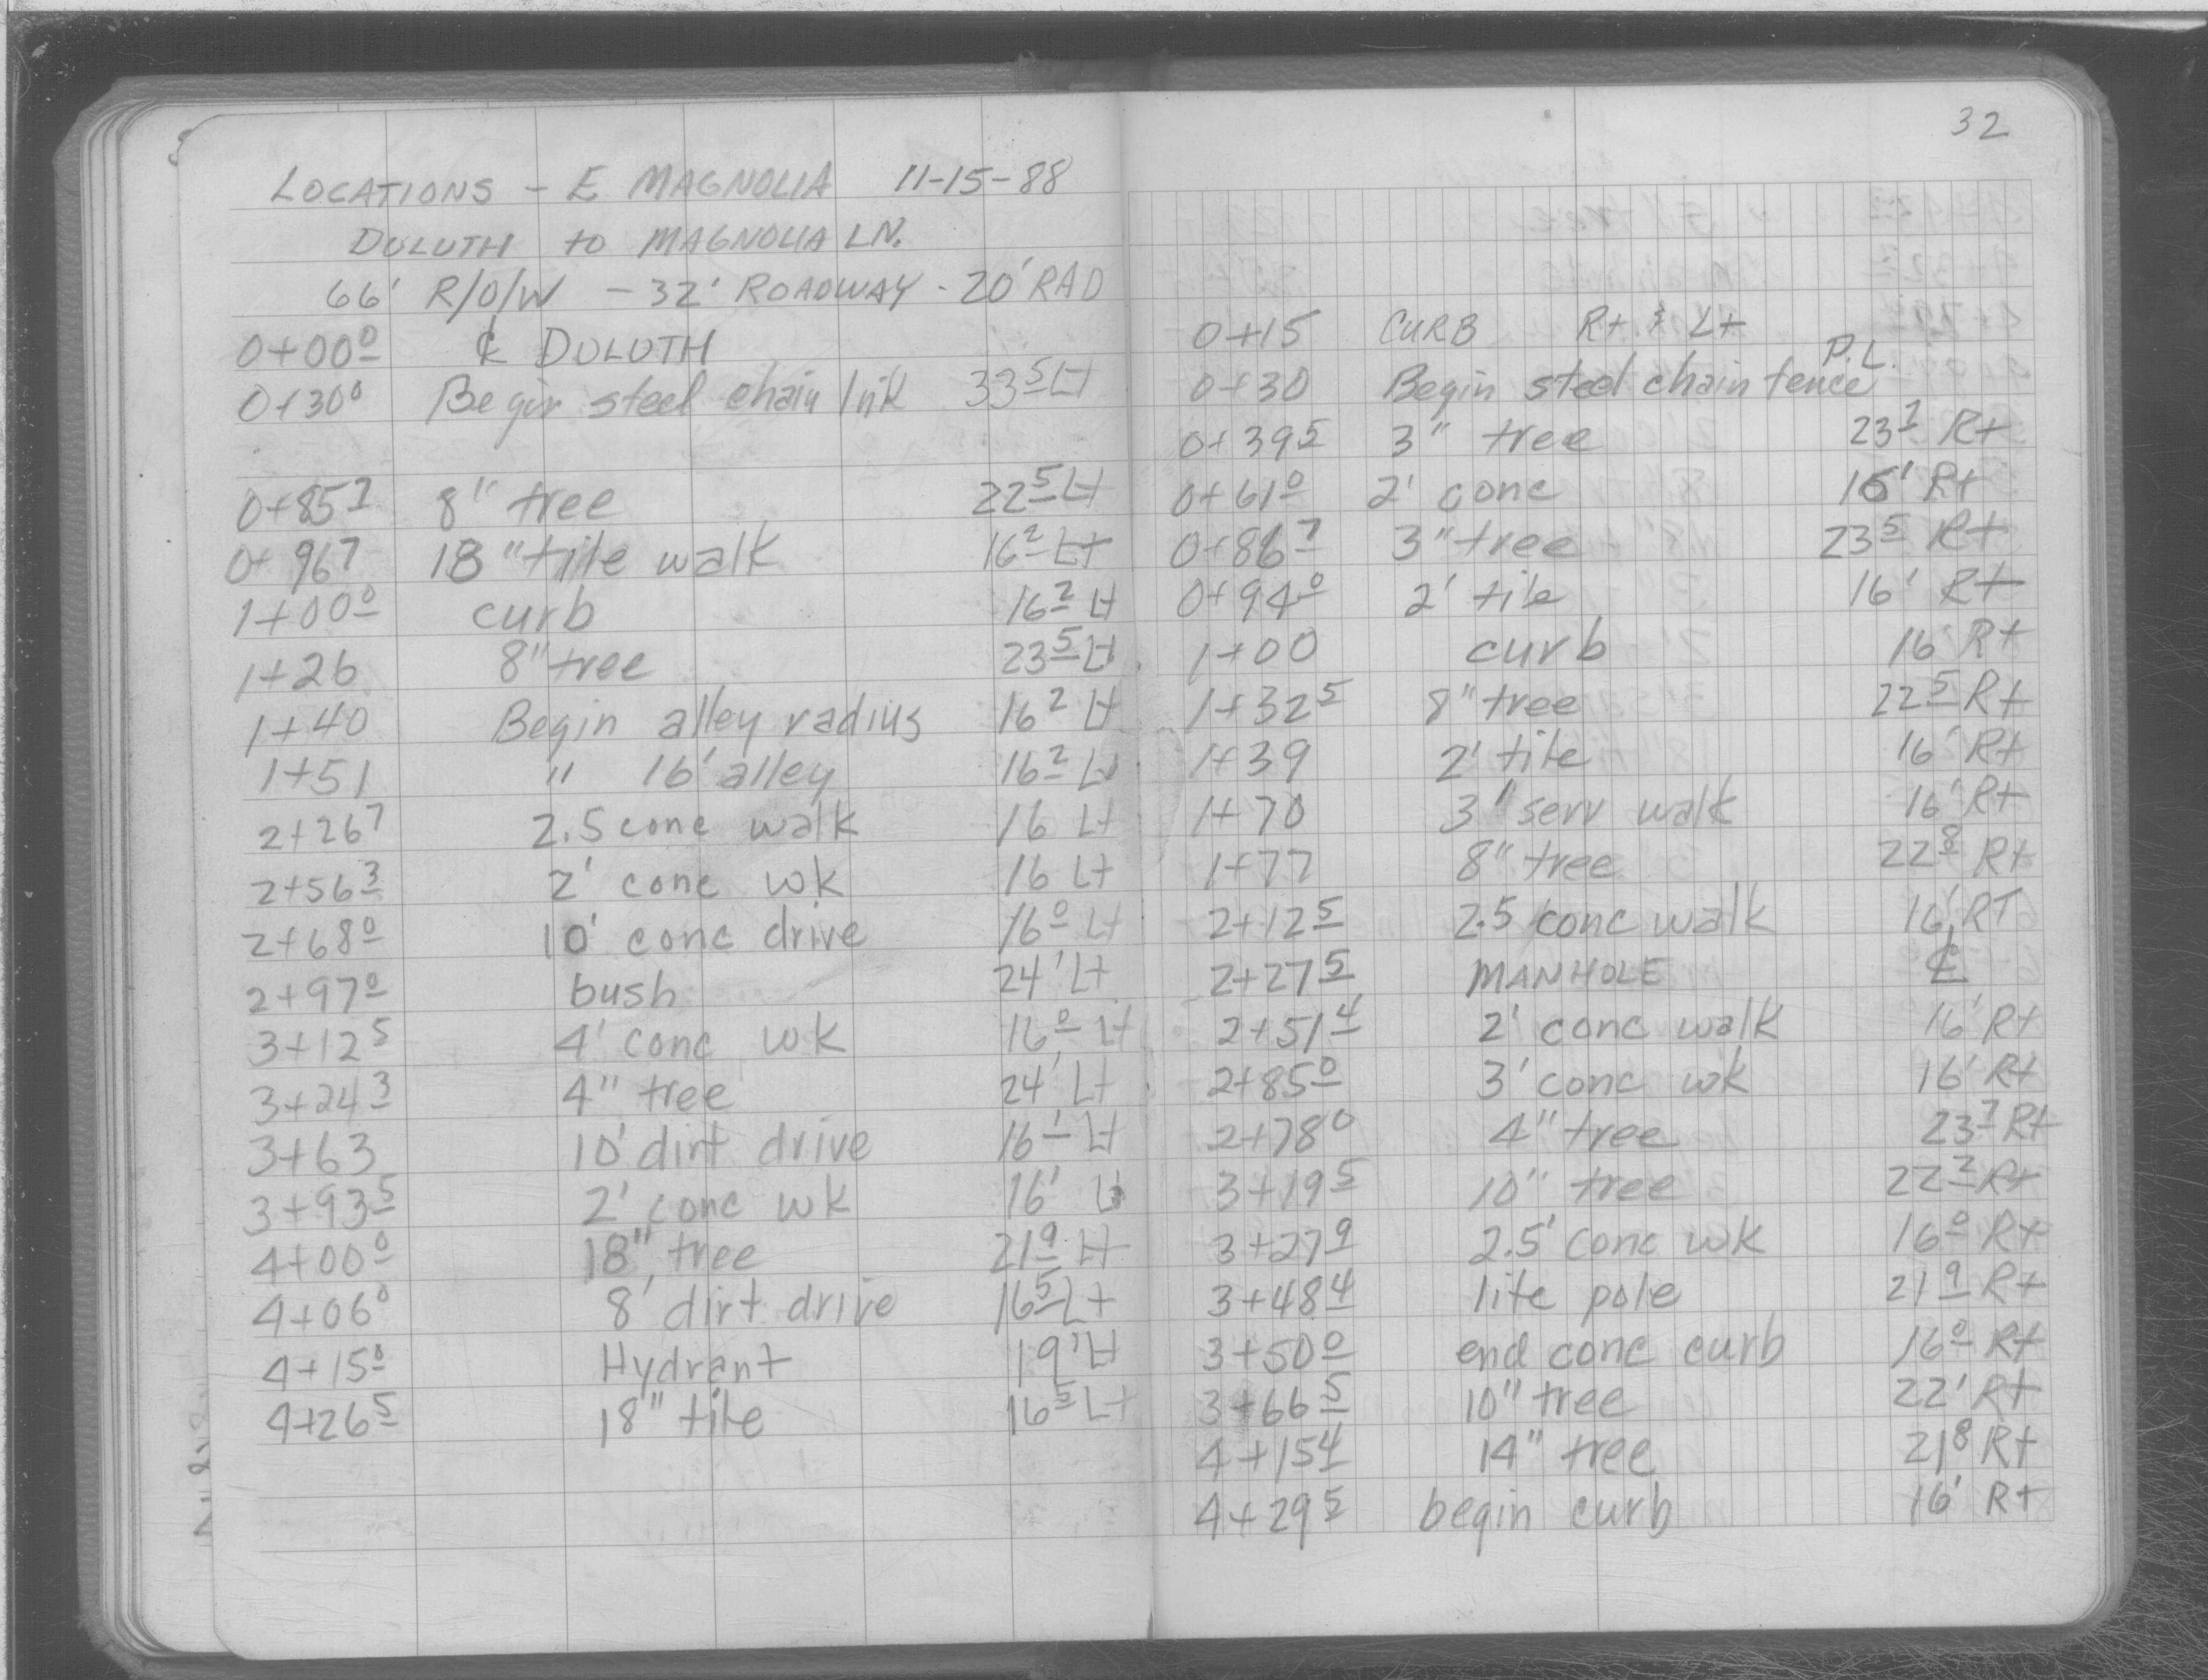 LOCATIONS - E MAGNOLIA 11-15-88
DULUTH to MAGNOLIA LN.
66' R/O/W - 32' ROADWAY - 20' RAD
0+00⁰ ℄ DULUTH
0+30⁰ Begin steel chain link 33⁵ Lt
0+85⁷ 8" tree 22⁵ Lt
0+96⁷ 18" tile walk 16² Lt
1+00⁰ curb 16² Lt
1+26 8" tree 23⁵ Lt
1+40 Begin alley radius 16² Lt
1+51 " 16' alley 16² Lt
2+26⁷ 2.5 conc walk 16 Lt
2+56³ 2' conc wk 16 Lt
2+68⁰ 10' conc drive 16⁰ Lt
2+97⁰ bush 24' Lt
3+12⁵ 4' conc wk 16⁰ Lt
3+24³ 4" tree 24' Lt
3+63 10' dirt drive 16¹ Lt
3+93⁵ 2' conc wk 16' Lt
4+00⁰ 18" tree 21⁹ Lt
4+06⁰ 8' dirt drive 16⁵ Lt
4+15⁰ Hydrant 19' Lt
4+26⁵ 18" tile 16⁵ Lt
32
0+15 CURB Rt. & Lt
P.L.
0+30 Begin steel chain fence
0+39⁵ 3" tree 23² Rt
0+61⁰ 2' conc 16' Rt
0+86⁷ 3" tree 23⁵ Rt
0+94⁰ 2' tile 16' Rt
1+00 curb 16' Rt
1+32⁵ 8" tree 22⁵ Rt
1+39 2' tile 16' Rt
1+70 3" serv walk 16' Rt
1+77 8" tree 22⁸ Rt
2+12⁵ 2.5 conc walk 16' RT
2+27⁵ MANHOLE ℄
2+51⁴ 2' conc walk 16' Rt
2+85⁰ 3' conc wk 16' Rt
2+78⁰ 4" tree 23⁷ Rt
3+19⁵ 10" tree 22² Rt
3+27⁹ 2.5' conc wk 16⁰ Rt
3+48⁴ lite pole 21⁹ Rt
3+50⁰ end conc curb 16⁰ Rt
3+66⁵ 10" tree 22' Rt
4+15⁴ 14" tree 21⁸ Rt
4+29⁵ begin curb 16' Rt